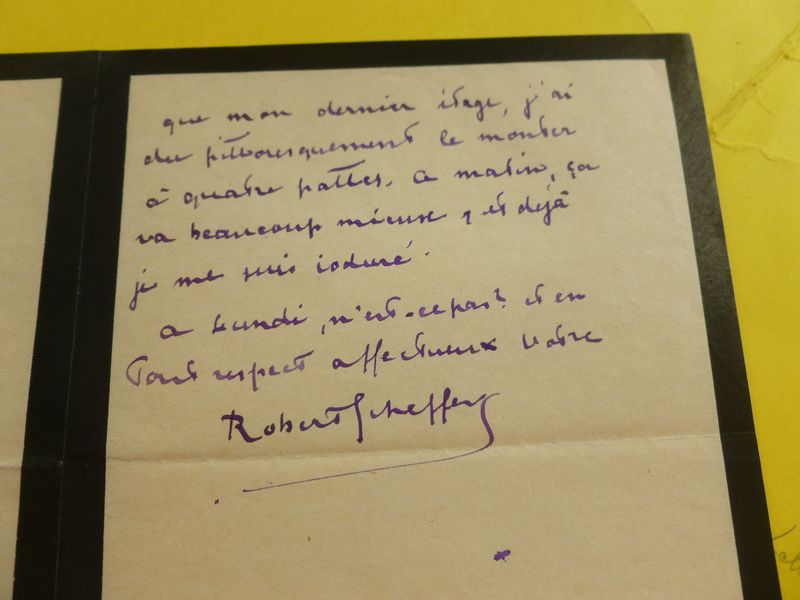 que mon dernier étage, j'ai
du pittoresquement le monter
à quatre pattes. Ce matin, ça
va beaucoup mieux, et déjà
je me suis ioduré.
A Lundi, n'est-ce pas? et en
tout respect affectueux votre
Robert Scheffer